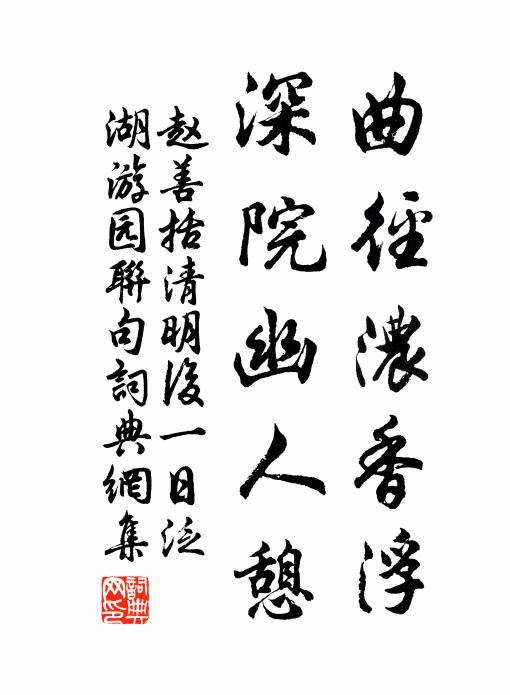 曲徑濃香浮
深院幽人憩
赵善括清明後一日泛
湖游园聯句詞典網集
詞典网印